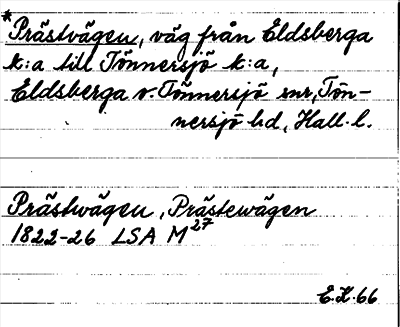 *Prästvägen, väg från Eldsberga
k:a till Tönnersjö k:a,
Eldsberga o. Tönnersjö snr, Tön-
nersjö hd, Hall. l.
Prästvägen, Prästewägen
1822-26 LSA M27
E.K. 66